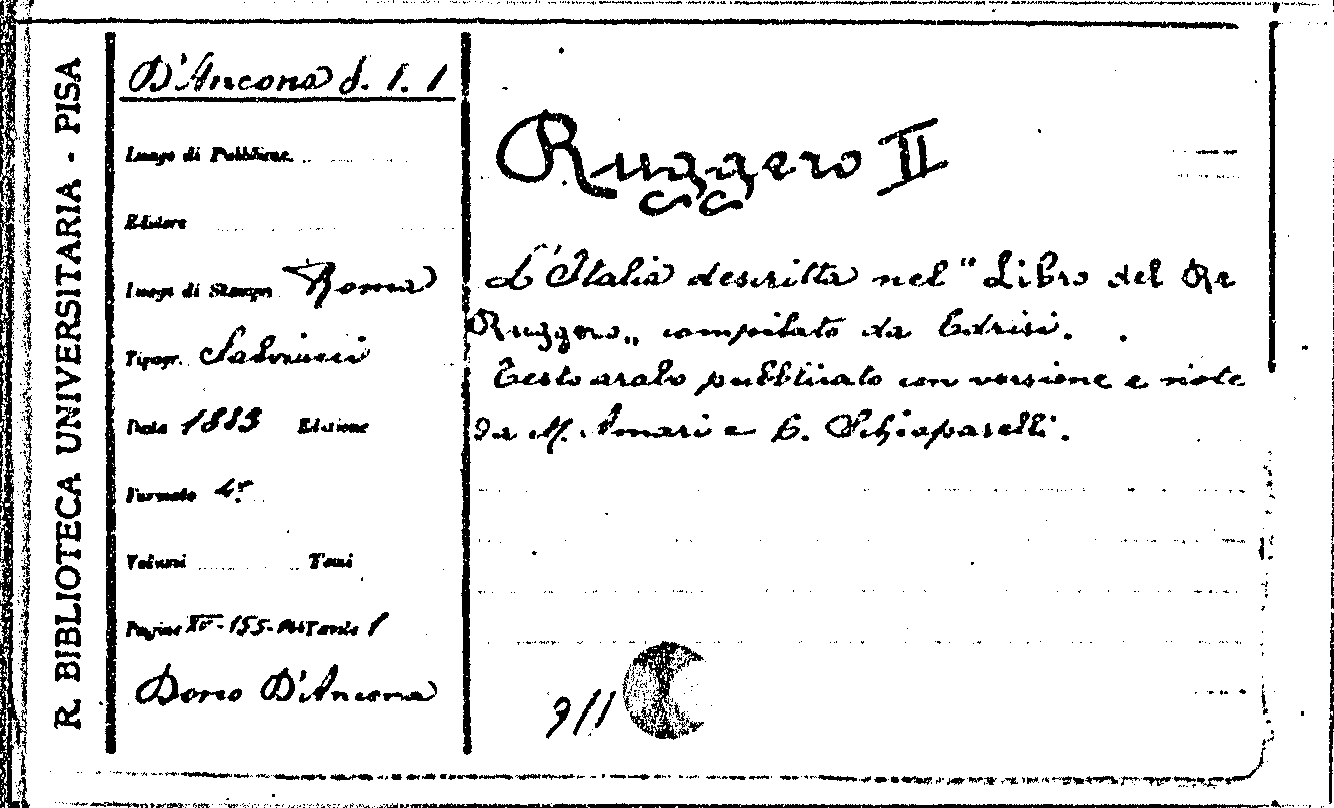 R. BIBLIOTECA UNIVERSITARIA - PISA
D'Ancona d. 1. 1
Luogo di Pubblicaz.
Editore
Luogo di Stampa Roma
Tipogr. Salviucci
Data 1883 Edizione
Formato 4º
Volumi Tomi
Pagine XV-155- Tavole 1
Dono D'Ancona
Ruggero II
L'Italia descritta nel "Libro del Re
Ruggero„ compilato da Edrisi.
Testo arabo pubblicato con versione e note
da M. Amari e C. Schiaparelli.
911